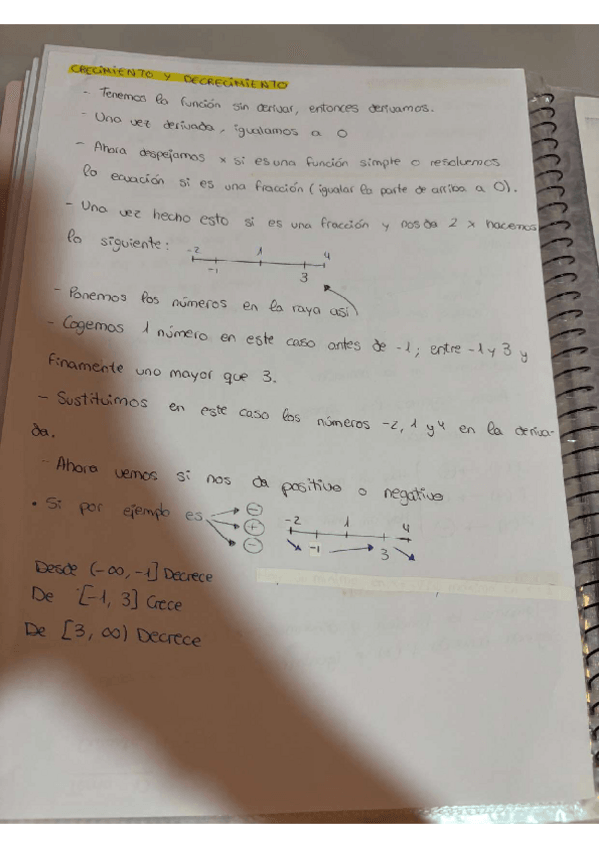 CRECIMIENTO Y DECRECIMIENTO
- Tenemos la función sin derivar, entonces derivamos.
- Una vez derivada, igualamos a 0
- Ahora despejamos x si es una función simple o resolvemos
la ecuación si es una fracción (igualar la parte de arriba a 0).
- Una vez hecho esto si es una fracción y nos da 2 x hacemos
lo siguiente:
-2 1 4
-1 3
- Ponemos los números en la raya así
- Cogemos 1 número en este caso antes de -1; entre -1 y 3 y
finamente uno mayor que 3.
- Sustituimos en este caso los números -2, 1 y 4 en la deriva-
da.
- Ahora vemos si nos da positivo o negativo
• Si por ejemplo es → - → + → -
-2 1 4
-1 3
Desde (-∞, -1] Decrece
De [-1, 3] Crece
De [3, ∞) Decrece